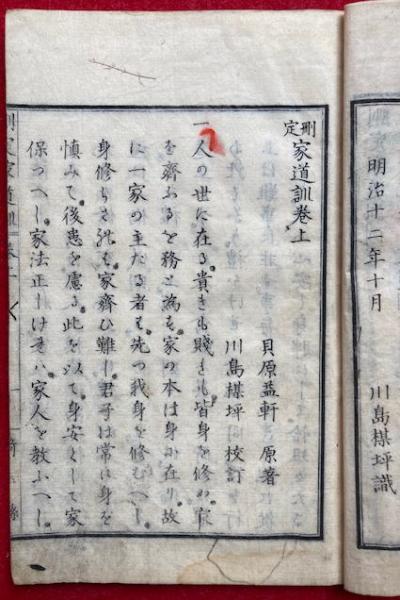 明治十二年十月
川島楳坪識
刪定 家道訓卷上
貝原益軒 原著
川島楳坪 校訂
一 人の世に在る貴きも賤きも皆身を修め家
を齊ふるを務と為す家の本は身に在り故
に一家の主たる者は先つ我身を修むへし
身修らされは家齊ひ難し君子は常に身を
慎みて後患を慮る此を以て身安くして家
保つへし家法正しけれハ家人を教ふへし
刪定家道訓 卷上